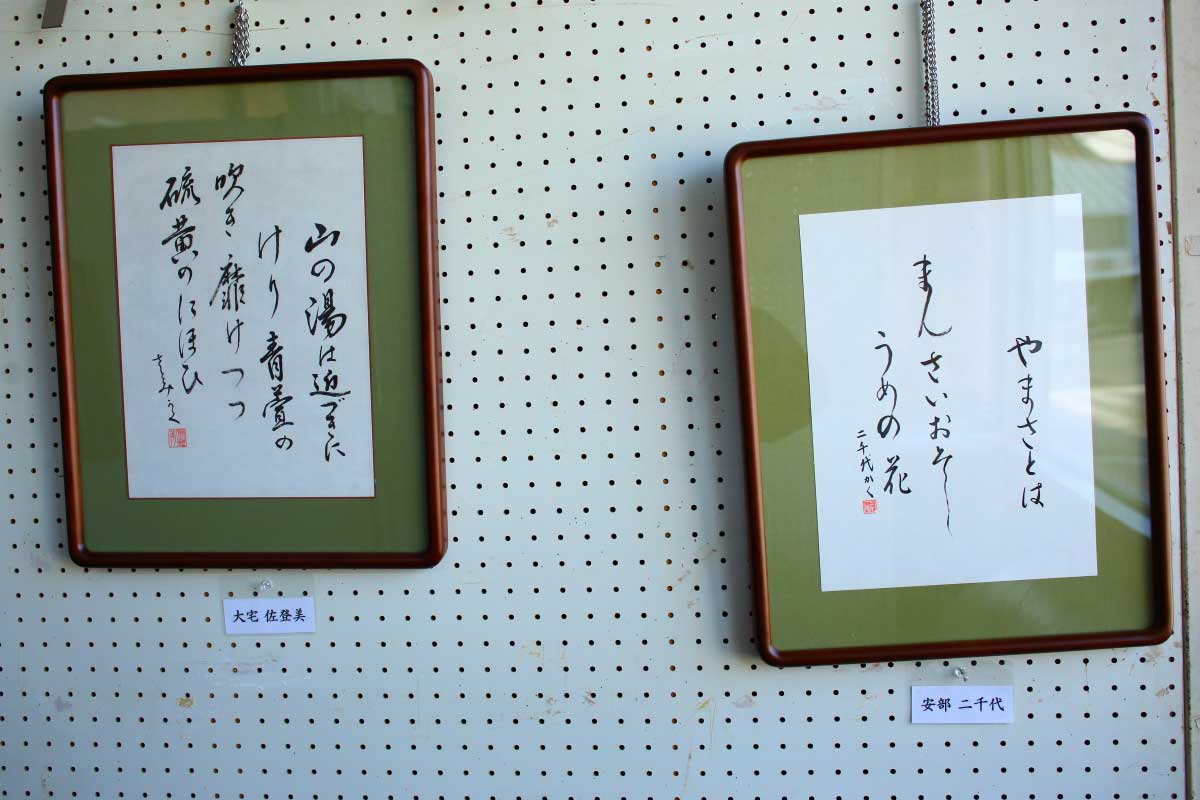 山の湯は近づきに
けり青萱の
吹き靡けつつ
硫黄のにほひ
さとみかく
大宅 佐登美
やまさとは
まんさいおそし
うめの花
二千代かく
安部 二千代